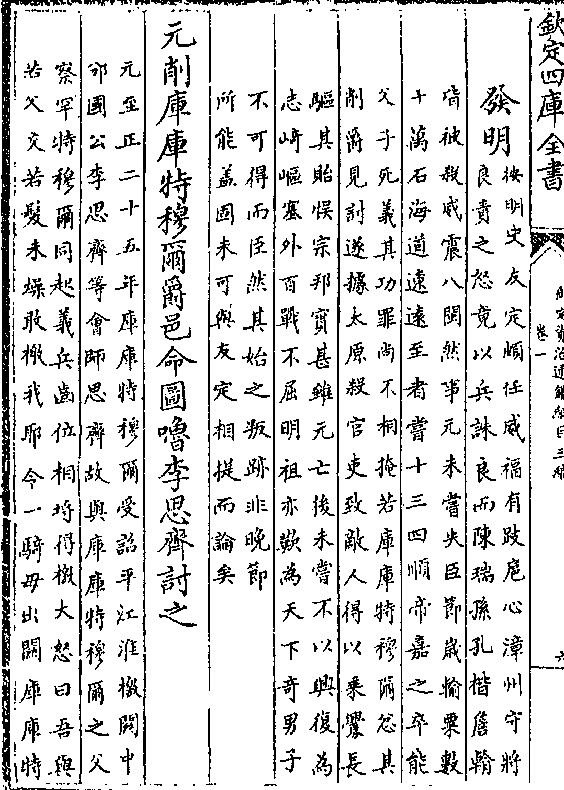 欽定四庫全書
御定資治通鑑綱目三編
卷一
六
發明
按明史友定頗任威福有跋扈心漳州守將
良賁之怒竟以兵誅良而陳瑞孫孔楷詹翰
皆被殺威震八閩然事元未嘗失臣節歲輸粟數
十萬石海道遼遠至者嘗十三四順帝嘉之卒能
父子死義其功罪尚不相掩若庫庫特穆爾忿其
削爵見討遂據太原殺官吏致敵人得以乘釁長
驅其貽悞宗邦實甚雖元亡後未嘗不以興復為
志崎嶇塞外百戰不屈明祖亦歎為天下奇男子
不可得而臣然其始之叛跡非晚節
所能蓋固未可與友定相提而論矣
元削庫庫特穆爾爵邑命圖嚕李思齊討之
元至正二十五年庫庫特穆爾受詔平江淮檄關中
邠國公李思齊等會師思齊故與庫庫特穆爾之父
察罕特穆爾同起義兵齒位相埒得檄大怒曰吾與
若父交若髮未燥敢檄我耶令一騎毋出關庫庫特